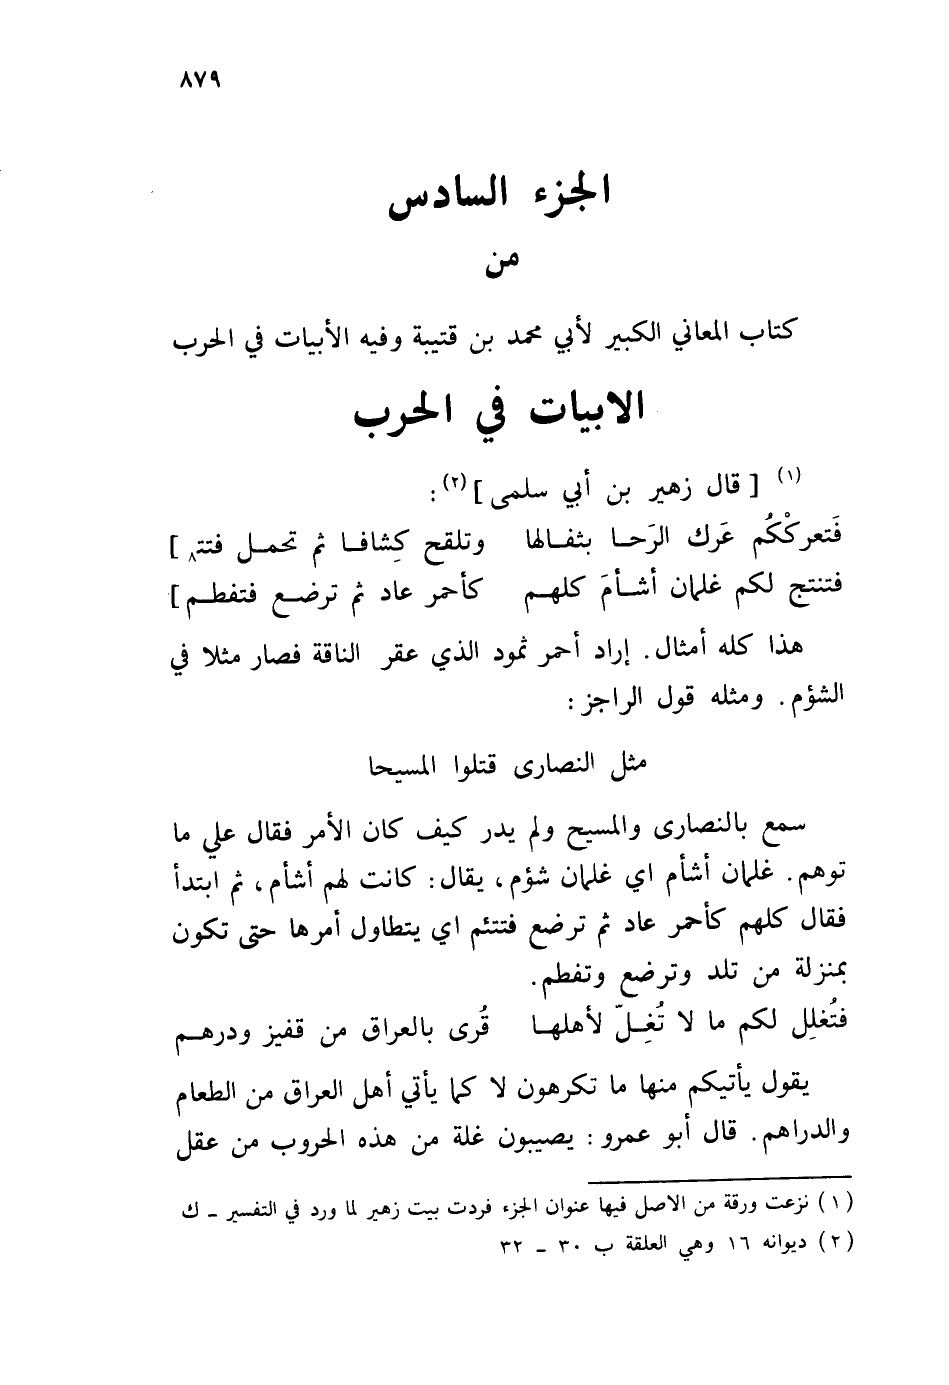 ٨٧٩
الجزء السادس
من
كتاب المعاني الكبير لأبي محمد بن قتيبة وفيه الأبيات في الحرب
الابيات في الحرب
(١) [ قال زهير بن أبي سلمى ](٢) :
فَتعركْكُم عَرك الرَحـا بثفـالها وتلقح كِشافـا ثم تحمـل فتتـ ]
فتنتج لكم غلمان أشـأمَ كلهـم كأحمر عاد ثم ترضـع فتفطـم ]
هذا كله أمثال. إراد أحمر ثمود الذي عقر الناقة فصار مثلا في
الشؤم. ومثله قول الراجز :
مثل النصارى قتلوا المسيحا
سمع بالنصارى والمسيح ولم يدر كيف كان الأمر فقال علي ما
توهم. غلمان أشأم اي غلمان شؤم، يقال: كانت لهم أشأم، ثم ابتدأ
فقال كلهم كأحمر عاد ثم ترضع فتتئم اي يتطاول أمرها حتى تكون
بمنزلة من تلد وترضع وتفطم.
فتُغلِل لكم ما لا تُغِـلّ لأهلهـا قُرى بالعراق من قفيز ودرهـم
يقول يأتيكم منها ما تكرهون لا كما يأتي أهل العراق من الطعام
والدراهم. قال أبو عمرو : يصيبون غلة من هذه الحروب من عقل
(١) نزعت ورقة من الاصل فيها عنوان الجزء فردت بيت زهير لما ورد في التفسير ـ ك
(٢) ديوانه ١٦ وهي العلقة ب ٣٠ ـ ٣٢